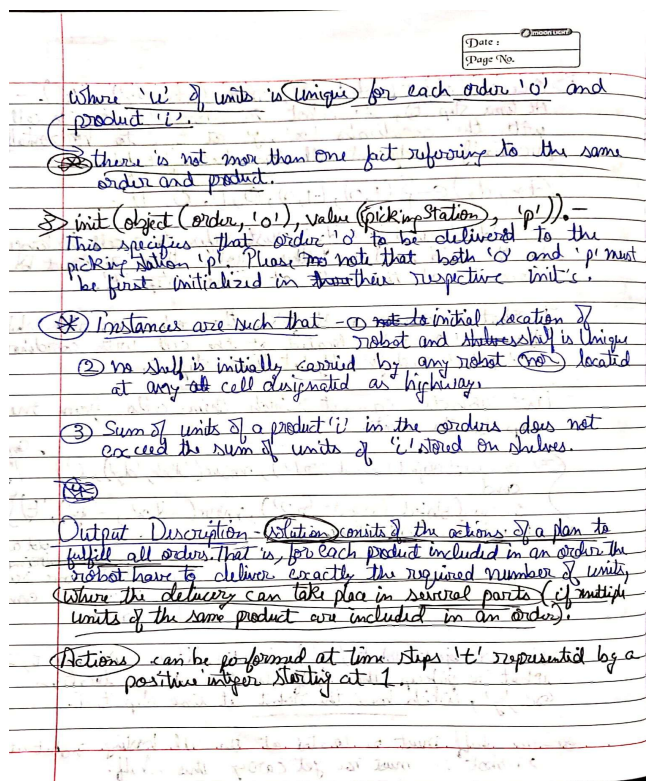 moon light
Date :
Page No.
where 'u' of units is unique for each order 'o' and
product 'i'.
there is not more than one fact referring to the same
order and product.
8> init(object(order, 'o'), value(pickingStation, 'p')).—
This specifies that order 'o' to be delivered to the
picking station 'p'. Please no note that both 'o' and 'p' must
be first initialized in their respective init's.
* Instances are such that - ① not to initial location of
robot and shelves shelf is Unique
② no shelf is initially carried by any robot nor located
at any cell designated as highway.
③ Sum of units of a product 'i' in the orders does not
exceed the sum of units of 'i' stored on shelves.
Output Description - solution consits of the actions of a plan to
fulfill all orders. That is, for each product included in an order the
robot have to deliver exactly the required number of units,
where the delivery can take place in several parts (if multiple
units of the same product are included in an order).
Actions can be performed at time steps 't' represented by a
positive integer starting at 1.